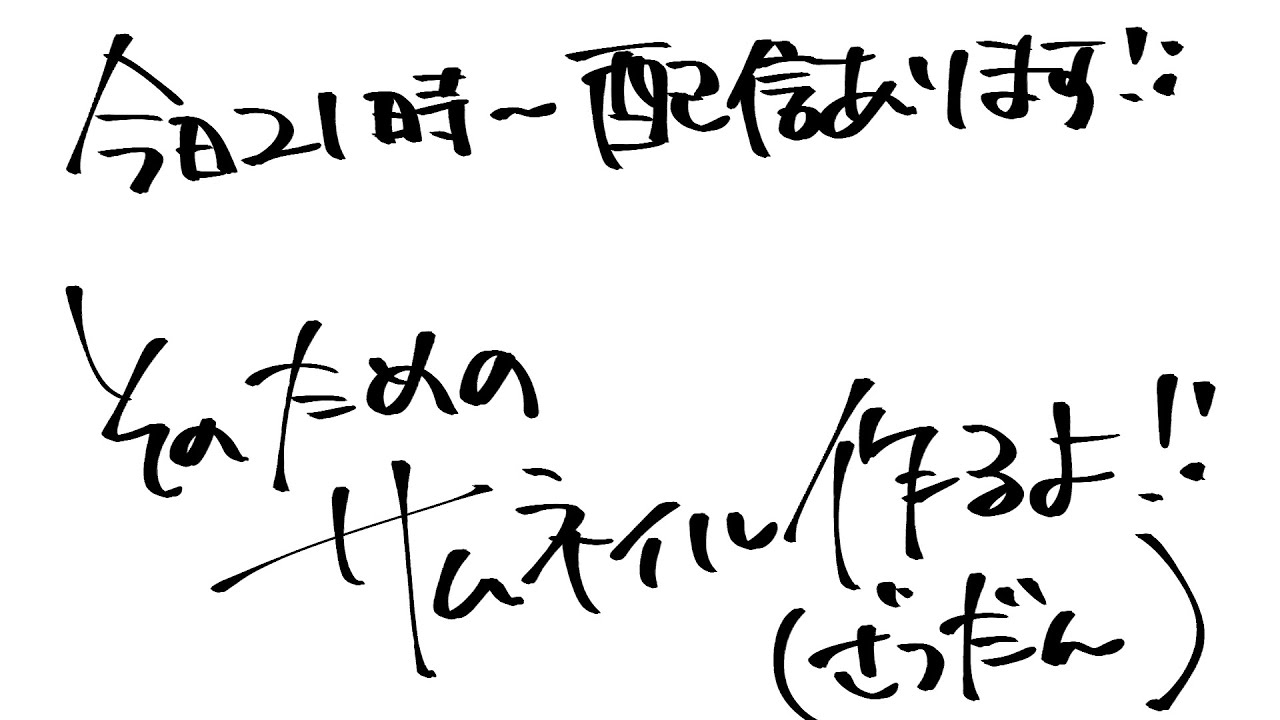 今日21時～配信あります!!
そのための
サムネイル作るよ!!
(ざつだん)